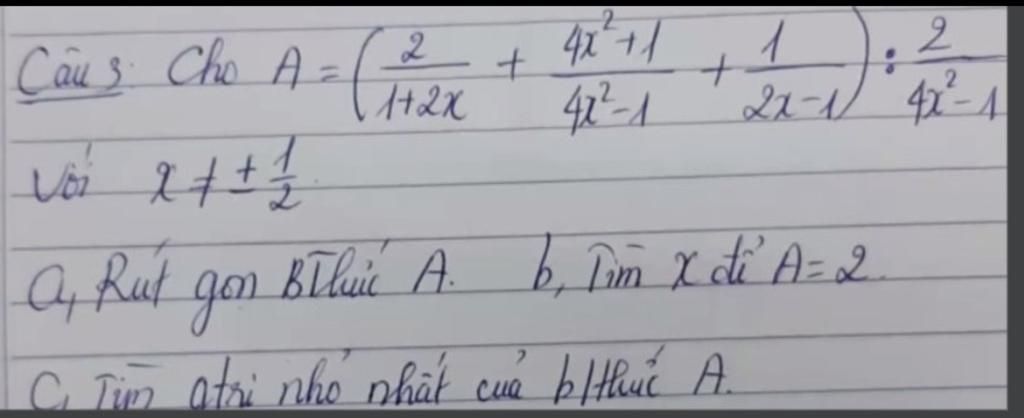 Câu 3. Cho A = (2/(1+2x) + (4x²+1)/(4x²-1) + 1/(2x-1)) : 2/(4x²-1)
Với x ≠ ± 1/2.
a, Rút gọn BThức A. b, Tìm x để A = 2.
C, Tìm gtri nhỏ nhất của b/thức A.